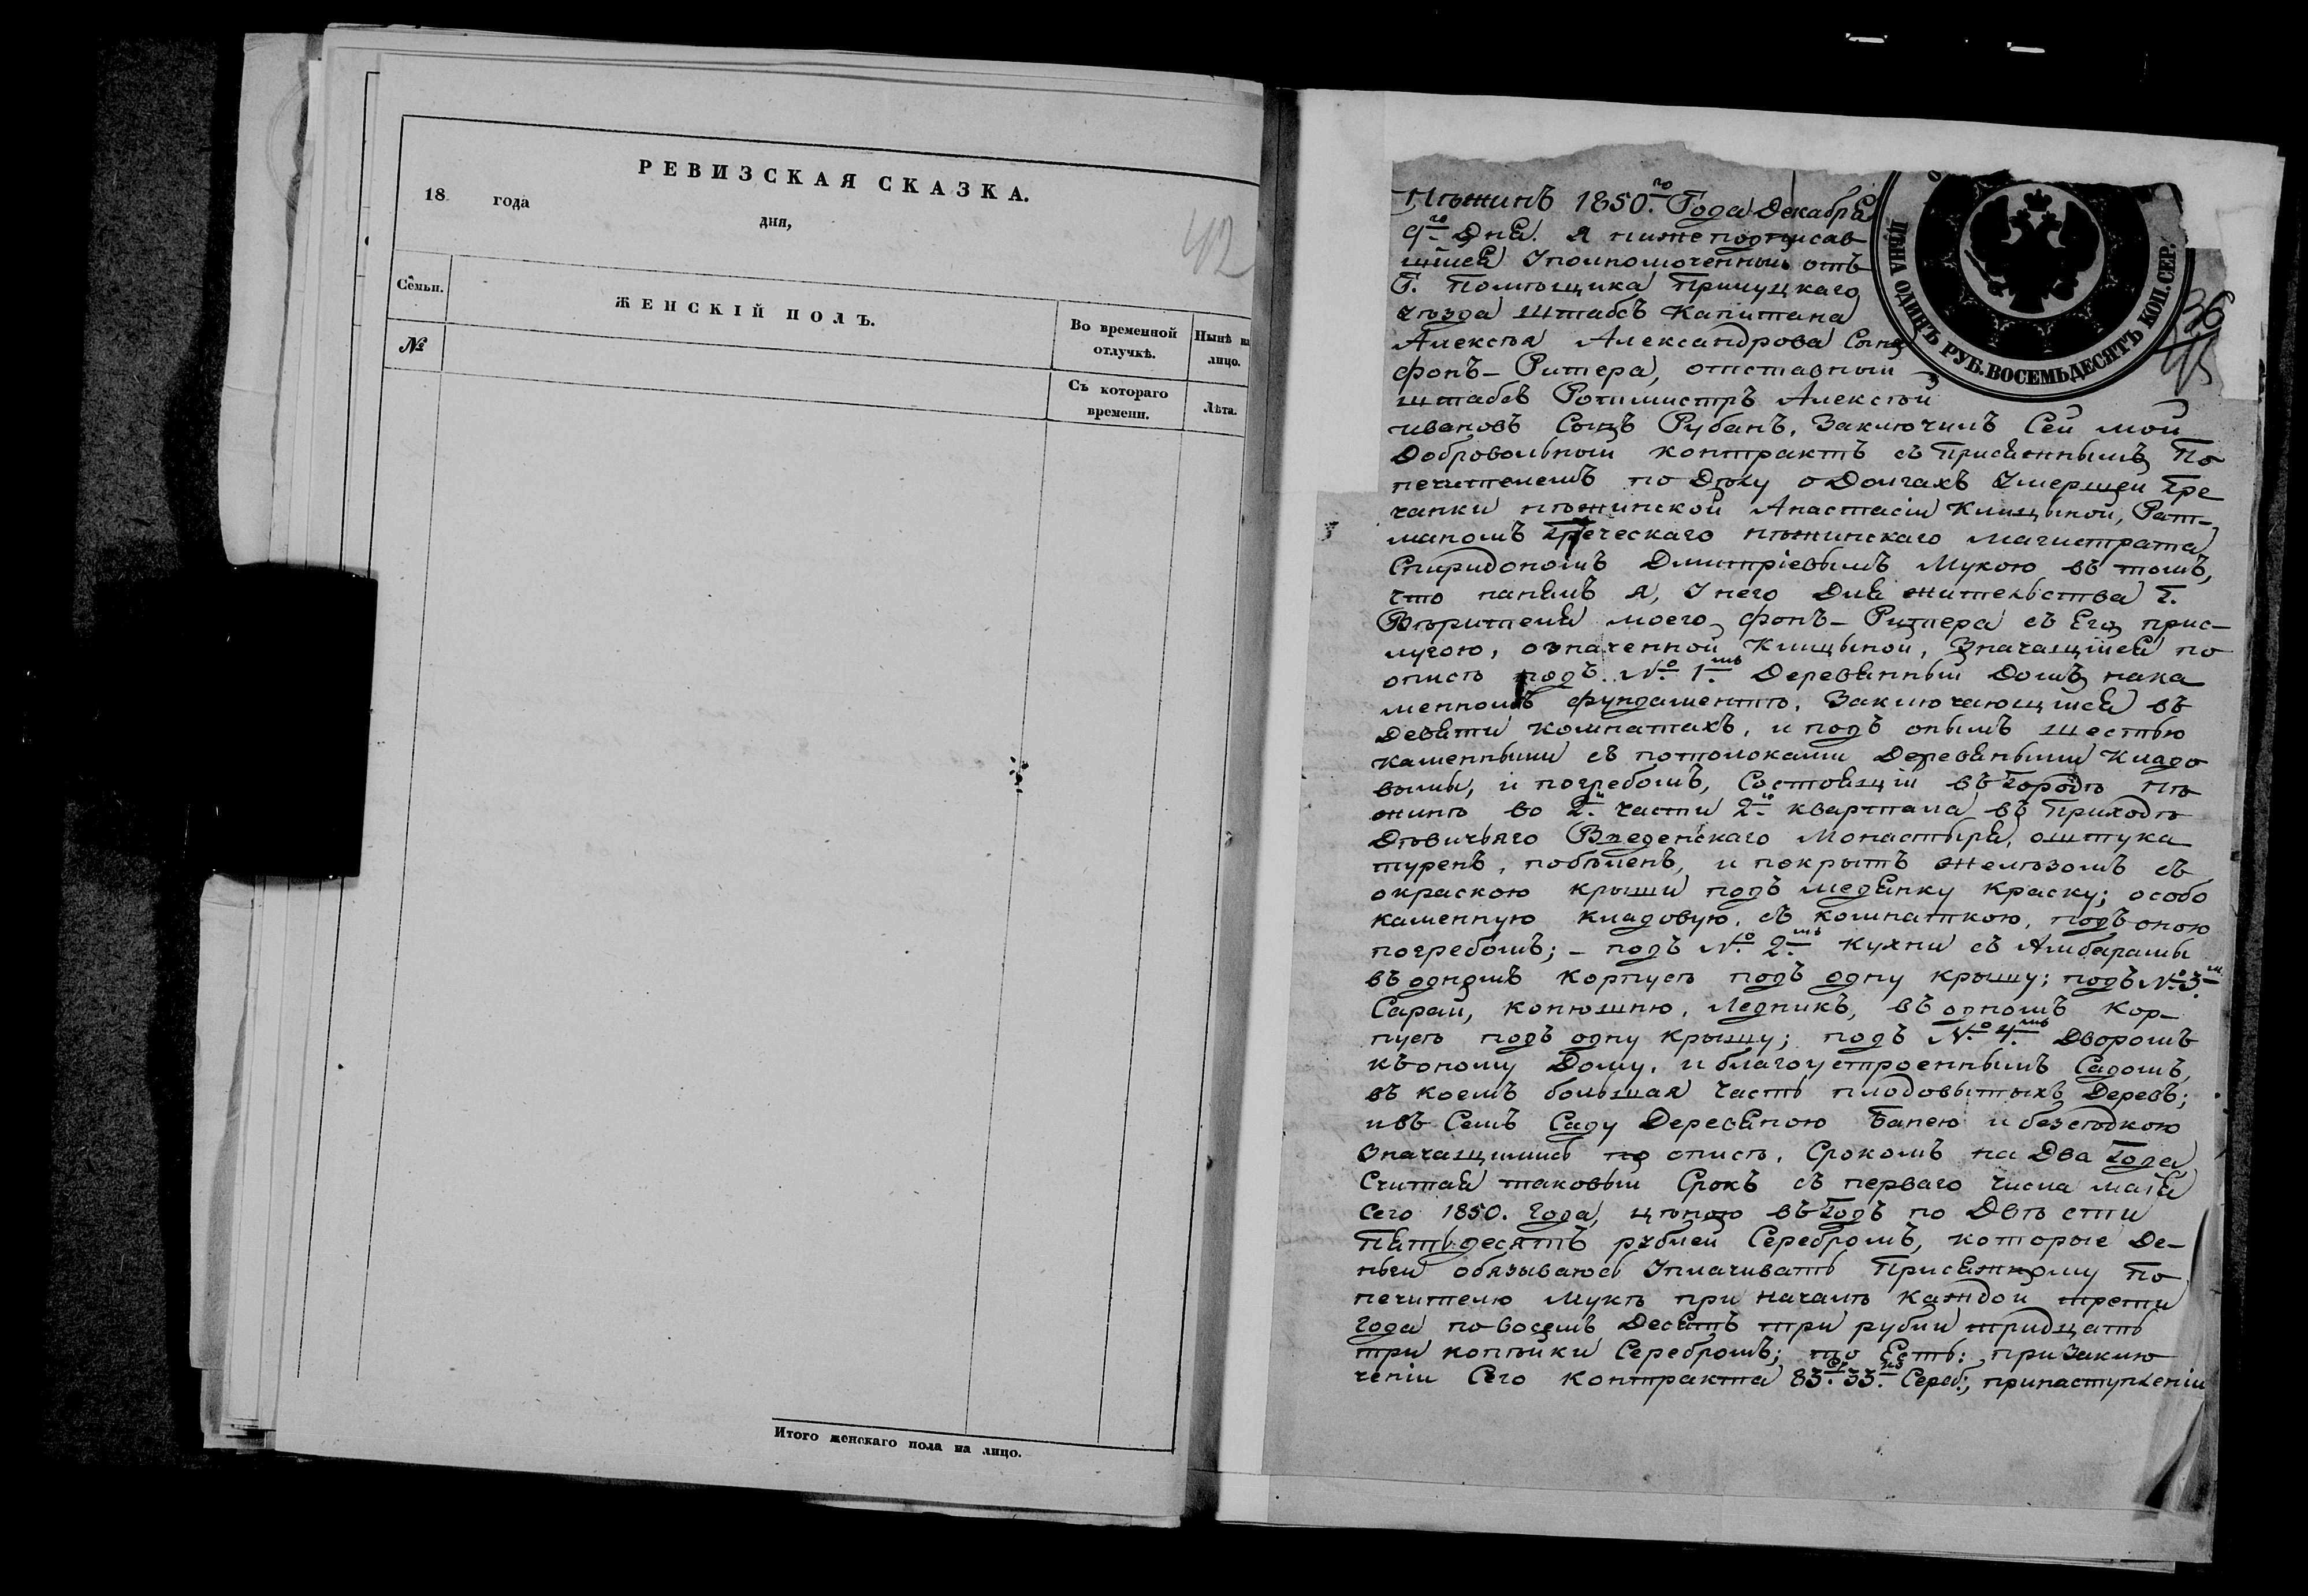 РЕВИЗСКАЯ СКАЗКА.
18 года
дня,
42
Семьи.
ЖЕНСКІЙ ПОЛЪ.
Во временной отлучкѣ.
Нынѣ на лицо.
№
Съ котораго времени.
Лѣта.
Итого женскаго пола на лицо.
ЦѢНА ОДИНЪ РУБ. ВОСЕМЬДЕСЯТЪ КОП. СЕР.
36
Нѣжинъ 1850.го Года Декабря
9го Дня. Я нижеподписав
шійся Уполномоченный отъ
Г. Помѣщика Прилуцкаго
уѣзда Штабсъ Капитана
Алексѣя Александрова Сына
фонъ-Ритера, отставный
штабсъ Ротмистръ Алексѣй
ивановъ Сынъ Рубанъ, Заключилъ Сей мой
Добровольный контрактъ съ Присяжнымъ По
печителемъ по Дѣлу о Долгахъ Умершей Гре
чанки нѣжинской Анастасіи Клицыной, Рат-
маномъ Греческаго нѣжинскаго магистрата
Спиридономъ Дмитріевымъ Мукою въ томъ,
что нанялъ я, У него Для жительства Г.
Вѣрителя моего фонъ-Ритера съ Его прис-
лугою, означенной Клицыной, Значащійся по
описѣ подъ № 1.мъ Деревянный Домъ нака
менномъ фундаментѣ, Заключающійся въ
Девяти комнатахъ, и подъ онымъ шестью
каменными съ потолоками Деревяными Кладо
выми, и погребомъ, Состоящій въ Городѣ Нѣ
жинѣ во 2.й части 2.го квартала въ Приходѣ
Дѣвичьяго Введенскаго Монастыря, оштука
туренъ, побѣленъ, и покрытъ желѣзомъ съ
окраскою крыши подъ медянку краску; особо
каменную кладовую, съ комнаткою, подъ оною
погребомъ; - подъ № 2.мъ Кухни съ Амбарамы
въ одномъ корпусѣ подъ одну крышу; подъ № 3.м
Сараи, конюшню, Ледникъ, въ одномъ Кор-
пусѣ подъ одну крышу; подъ № 4.мъ Дворомъ
къоному Дому, и благоустроеннымъ Садомъ,
въ коемъ большая часть плодовытыхъ Деревъ;
ивъ Семъ Саду Деревяною Банею и бесѣдкою
Значащимись по описѣ, Срокомъ на Два Года
Считая таковый Срокъ съ перваго числа маія
сего 1850. Года, цѣною въ Годъ по Двѣ сти
Пятьдесятъ рублей Серебромъ, которые Де-
ньги обязываюсь Уплачивать Присяжному По
печителю Мукѣ при началѣ каждой трети
Года по восемъ Десятъ три рубли тридцать
три копѣйки Серебромъ; то Есть: при Заклю
ченіи Сего контракта 83. 33. Сереб.; принаступленіи